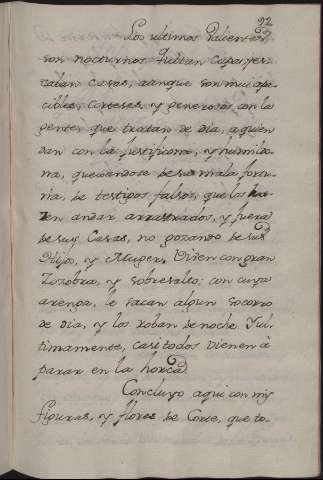 22
Los ultimos Valientes
son nocturnos Quitan Capas, yes-
calan Casas, aunque son mui apa-
cibles, Corteses, y generosos con la
gente, que tratan de dia, a quien
dan con la
na, quexandose de su mala fortu-
na, de testigos falsos, que los ha-
zen andar arrastrados, y fuera
de sus Casas, no gozando de sus
Hijos, y Muger, Viven con gran
Zozobra, y sobresalto; con cuya
arenga, le sacan algun socorro
de dia, y los roban de noche. Y ul-
timamente, casi todos vienen à
parar en la horca.
Concluyo aqui con mis
figuras, y flores de Corte, que to-